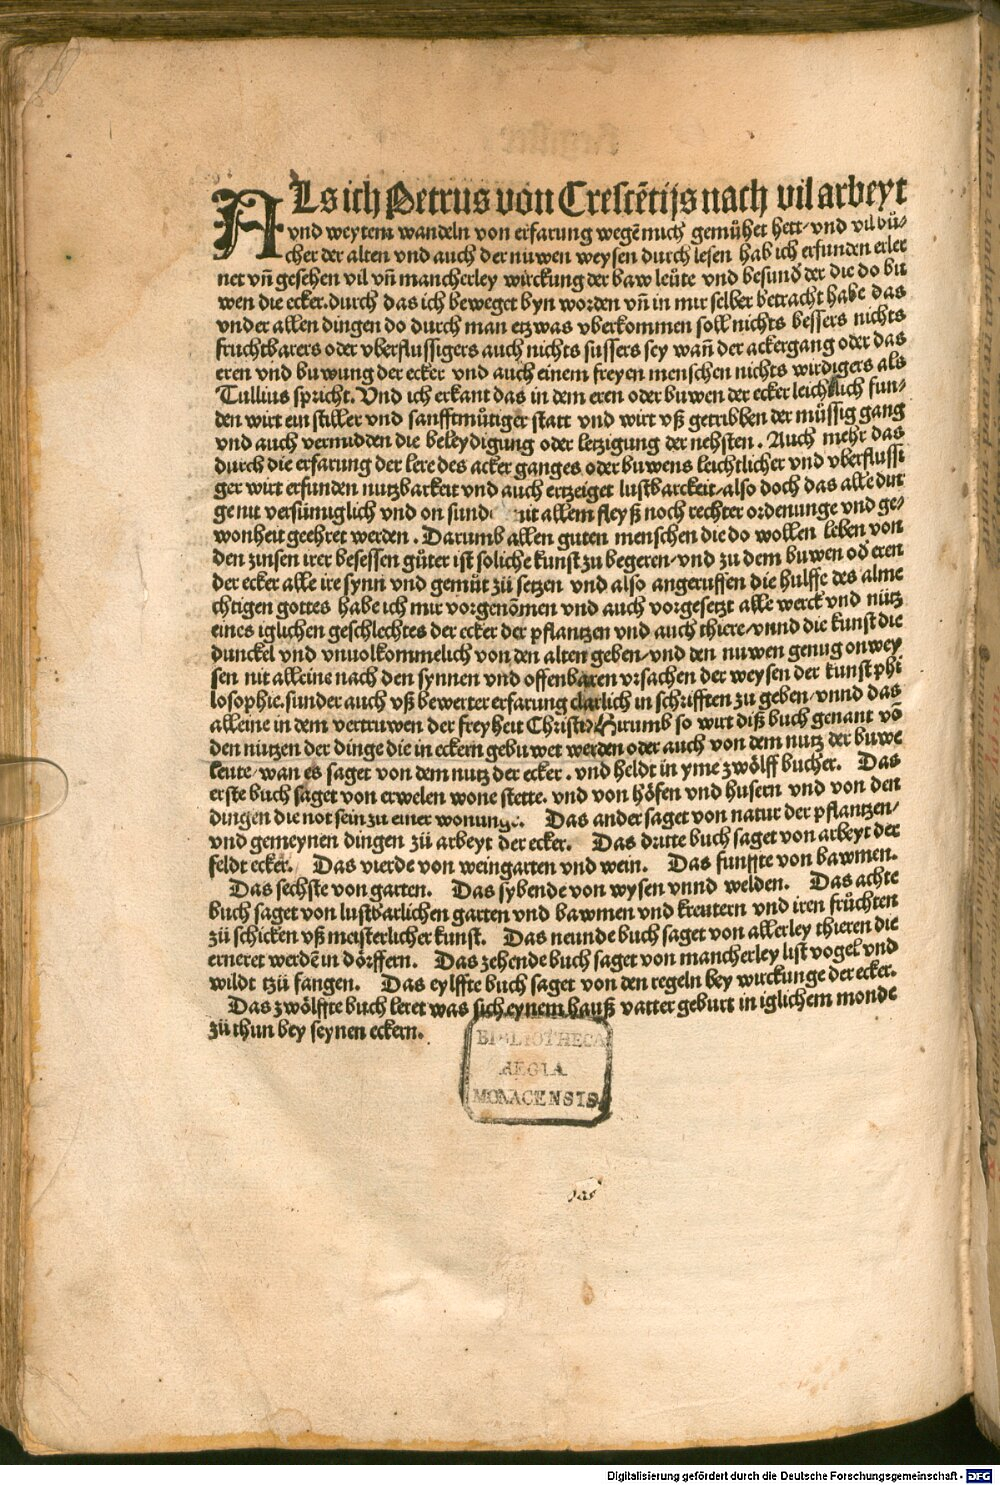 ALs ich Petrus von Crescētijs nach vil arbeyt
vnd weytem wandeln von erfarung wegē mich gemühet hett/vnd vil bü-
cher der alten vnd auch der nuwen weysen durch lesen hab ich erfunden erler
net vn̄ gesehen vil vn̄ mancherley wirckung der baw leüte vnd besund̕ der die do bu
wen die ecker.durch das ich beweget byn worden vn̄ in mir selber betracht habe das
vnder allen dingen do durch man etzwas vberkommen soll nichts bessers nichts
fruchtbarers oder vberflussigers auch nichts sussers sey wan̄ der ackergang oder das
eren vnd buwung der ecker vnd auch einem freyen menschen nichts wirdigers als
Tullius spricht. Vnd ich erkant das in dem eren oder buwen der ecker leichtlich fun-
den wirt ein stiller vnd sanfftmůtiger statt vnd wirt vß getribben der müssig gang
vnd auch vermidden die beleydigung oder letzigung der nehsten. Auch mehr das
durch die erfarung der lere des acker ganges oder buwens leichtlicher vnd vberflussi
ger wirt erfunden nutzbarkeit vnd auch ertzeiget lustbarckeit/also doch das alle din
ge nit versümiglich vnd on sunde mit allem fleyß noch rechter ordenunge vnd ge-
wonheit geehret werden. Darumb allen guten menschen die do wollen leben von
den zinsen irer besessen güter ist soliche kunst zu begeren/vnd zu dem buwen od̕ eren
der ecker alle ire synn vnd gemüt zü setzen vnd also angeruffen die hulffe des alme
chtigen gottes habe ich mir vorgenōmen vnd auch vorgesetzt alle werck vnd nütz
eines iglichen geschlechtes der ecker der pflantzen vnd auch thiere/vnnd die kunst die
dunckel vnd vnuolkommelich von den alten geben/vnd den nuwen genug onwey
sen nit alleine nach den synnen vnd offenbaren vrsachen der weysen der kunst phi
losophie.sunder auch vß bewerter erfarung clarlich in schrifften zu geben/vnnd das
alleine in dem vertruwen der freyheit Christi. Hirumb so wirt diß buch genant vō
den nutzen der dinge die in eckern gebuwet werden oder auch von dem nutz der buwe
leute/wan es saget von dem nutz der ecker. vnd heldt in yme zwölff bucher. Das
erste buch saget von erwelen wone stette. vnd von höfen vnd husern vnd von den
dingen die not sein zu einer wonunge. Das ander saget von natur der pflantzen/
vnd gemeynen dingen zü arbeyt der ecker. Das dritte buch saget von arbeyt der
feldt ecker. Das vierde von weingarten vnd wein. Das funffte von bawmen.
Das sechste von garten. Das sybende von wysen vnnd welden. Das achte
buch saget von lustbarlichen garten vnd bawmen vnd kreutern vnd iren früchten
zü schicken vß meisterlicher kunst. Das neunde buch saget von allerley thieren die
erneret werdē in dörffern. Das zehende buch saget von mancherley list vogel vnd
wildt tzü fangen. Das eylffte buch saget von den regeln bey wirckunge der ecker.
Das zwölffte buch leret was sich eynem hauß vatter geburt in iglichem monde
zü thun bey seynen eckern.
BIBLIOTHECA
REGIA
MONACENSIS
Digitalisierung gefördert durch die Deutsche Forschungsgemeinschaft - DFG